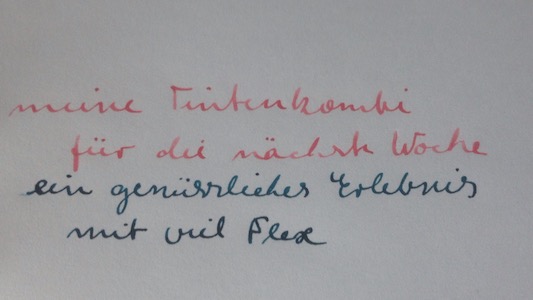 meine Tintenkombi
für die nächste Woche
ein genüssliches Erlebnis
mit viel Flex